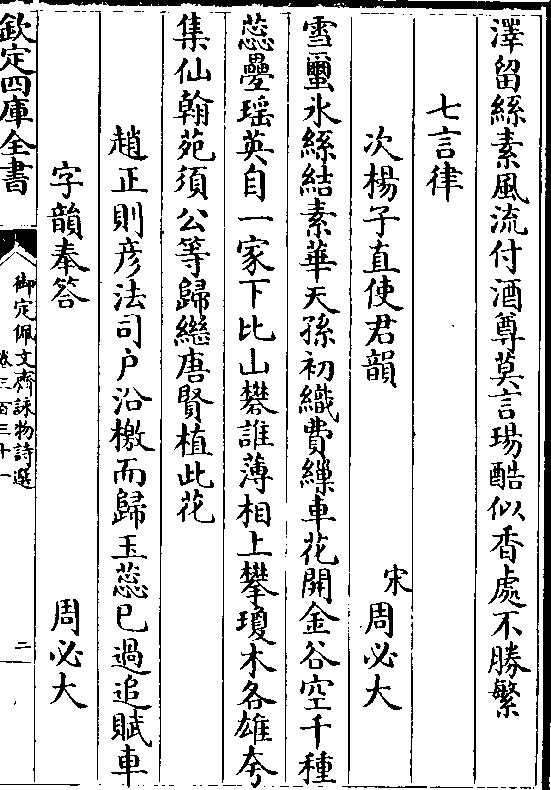 澤留縣素風流付酒尊莫言瑒酷似香處不勝繁
七言律
次楊子直使君韻
宋周必大
雪壐氷絲結素華天孫初織費繅車花開金谷空千種
蕊疊瑶英自一家下比山礬誰薄相上攀瓊木各雄夸
集仙翰苑須公等歸繼唐賢植此花
趙正則彦法司户沿檄而歸玉蕊已過追賦車
字韻奉答
周必大
欽定四庫全書
御定佩文齋詠物詩選
卷三百三十一
二